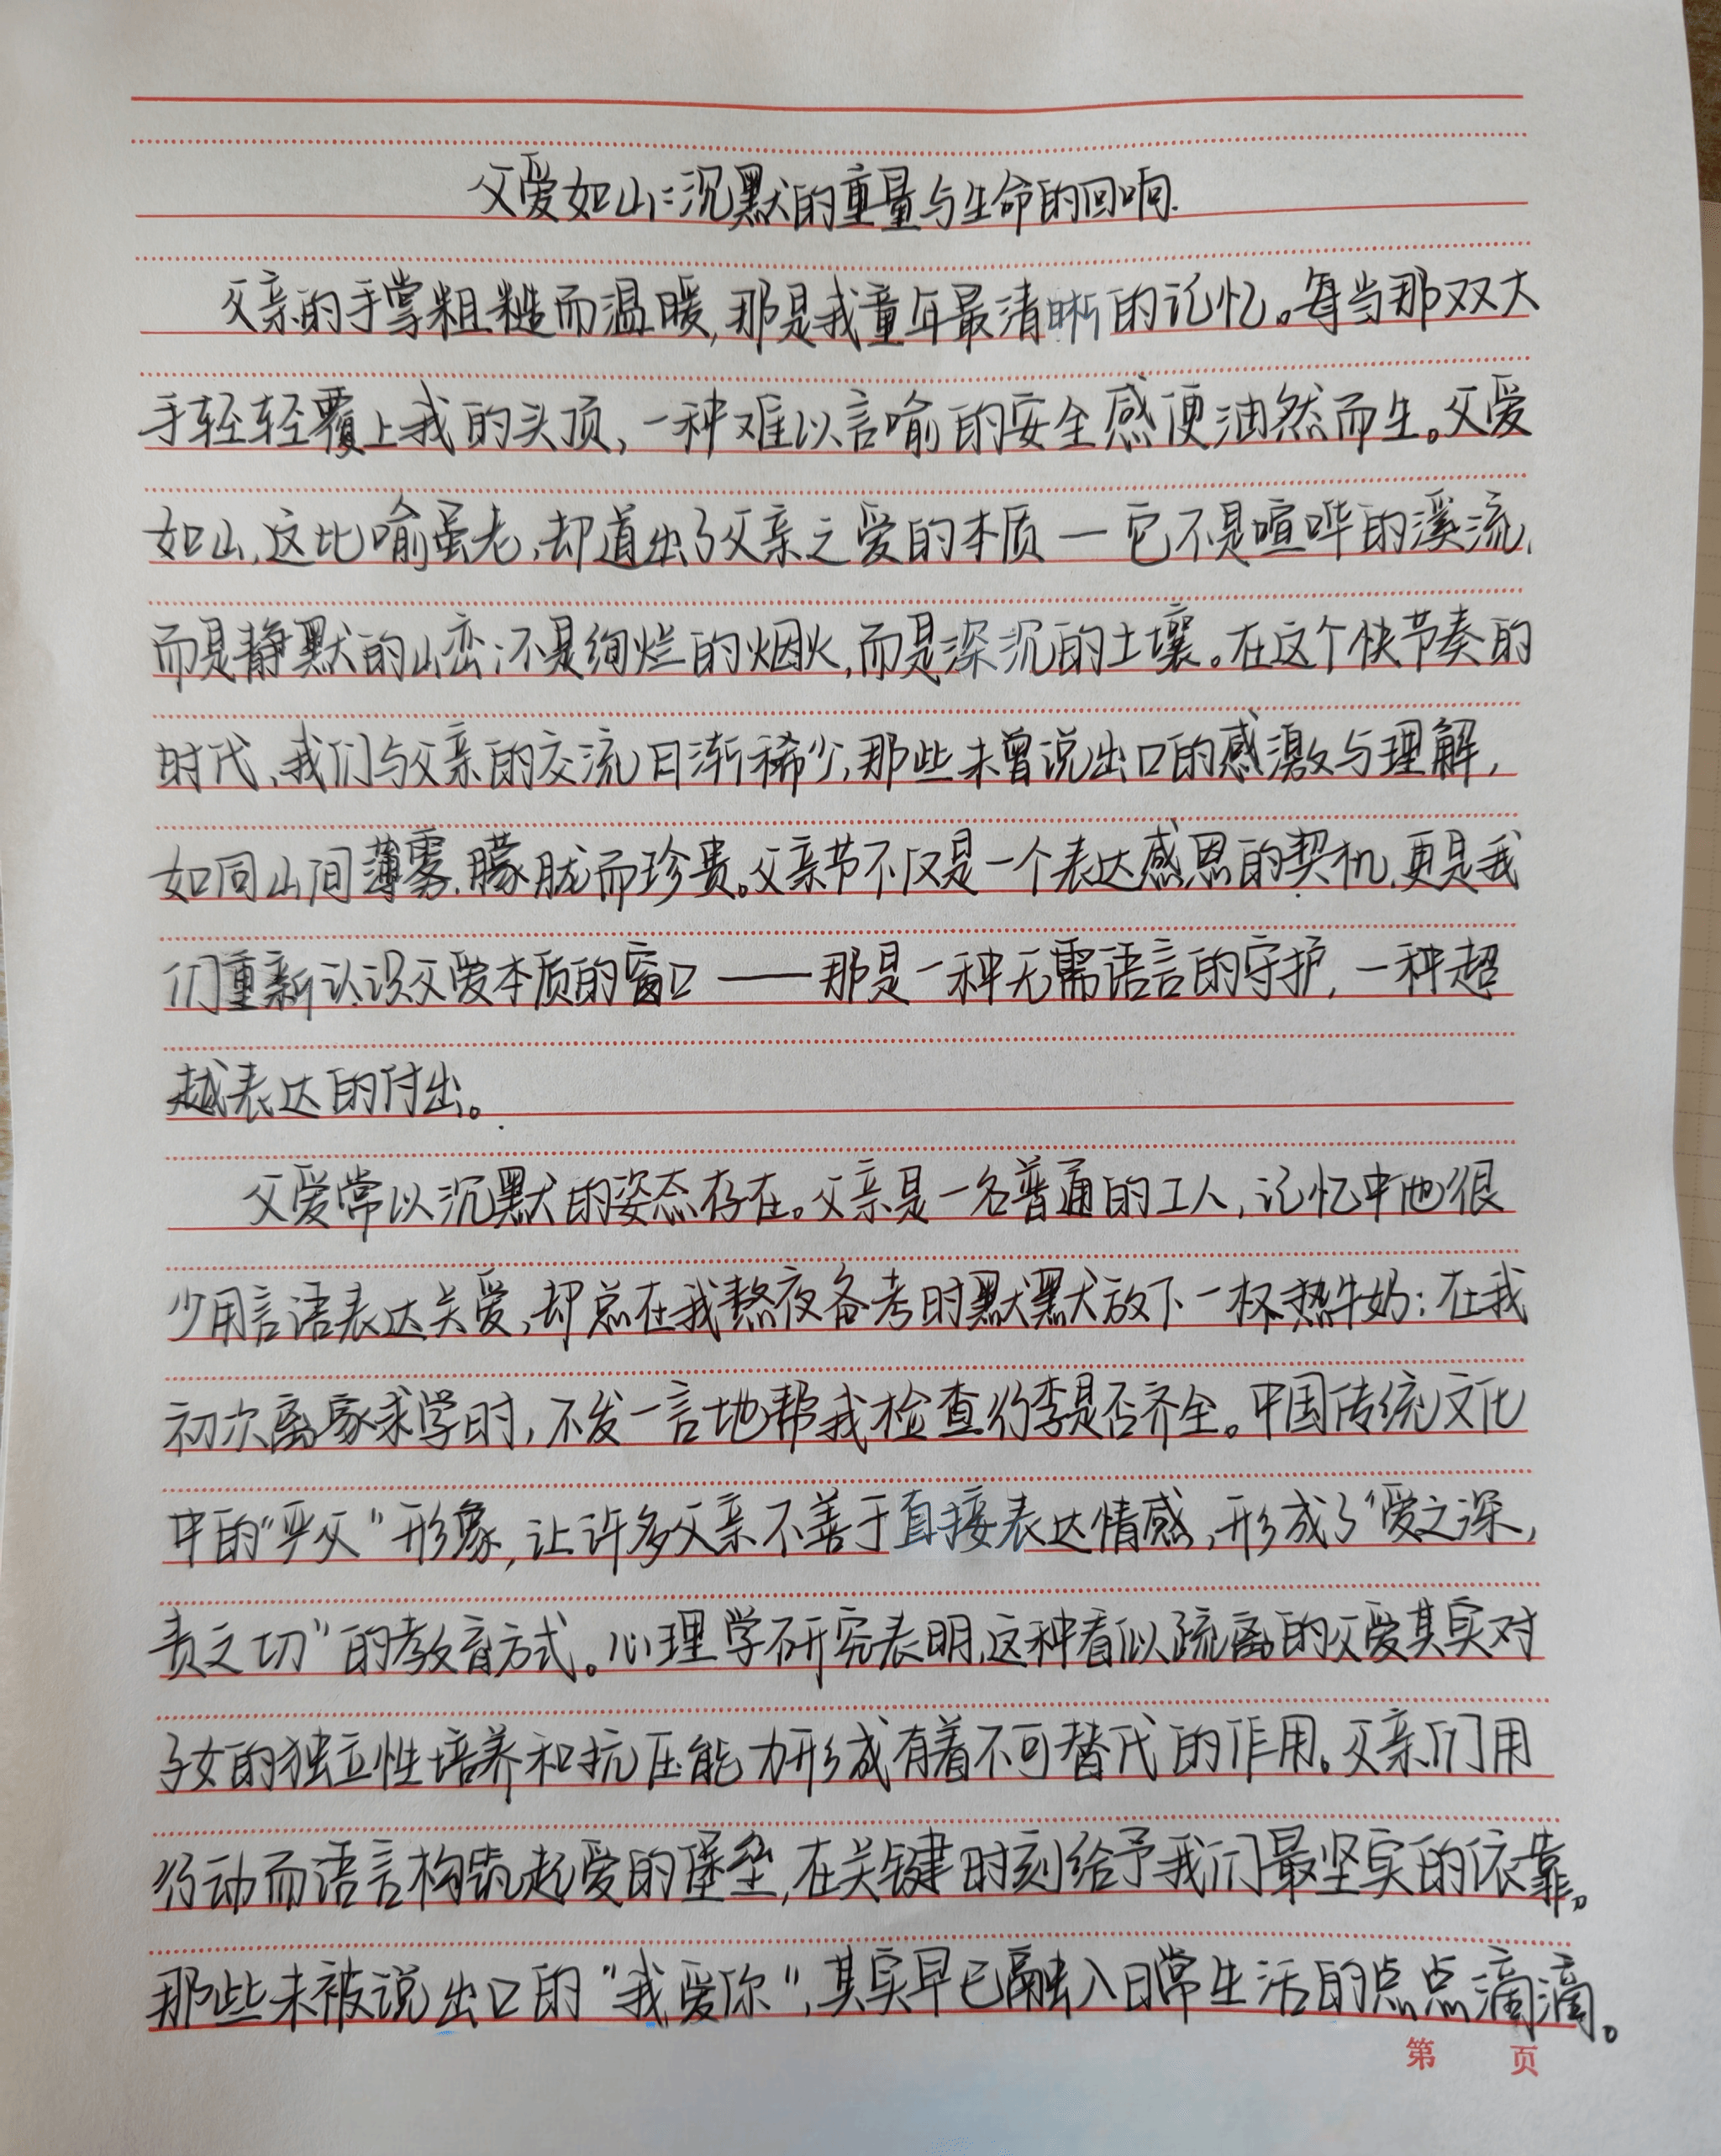 父爱如山:沉默的重量与生命的回响.
父亲的手掌粗糙而温暖,那是我童年最清晰的记忆。每当那双大
手轻轻覆上我的头顶,一种难以言喻的安全感便油然而生。父爱
如山,这比喻虽老,却道出了父亲之爱的本质—它不是喧哗的溪流,
而是静默的山峦;不是绚烂的烟火,而是深沉的土壤。在这个快节奏的
时代,我们与父亲的交流日渐稀少,那些未曾说出口的感激与理解,
如同山间薄雾,朦胧而珍贵。父亲节不仅是一个表达感恩的契机,更是我
们重新认识父爱本质的窗口——那是一种无需语言的守护,一种超
越表达的付出。
父爱常以沉默的姿态存在。父亲是一名普通的工人,记忆中他很
少用言语表达关爱,却总在我熬夜备考时默默放下一杯热牛奶;在我
初次离家求学时,不发一言地帮我检查行李是否齐全。中国传统文化
中的“严父”形象,让许多父亲不善于直接表达情感,形成了“爱之深,
责之切”的教育方式。心理学研究表明,这种看似疏离的父爱其实对
子女的独立性培养和抗压能力形成有着不可替代的作用。父亲们用
行动而语言构筑起爱的堡垒,在关键时刻给予我们最坚实的依靠。
那些未被说出口的“我爱你”,其实早已融入日常生活的点点滴滴。
第 页